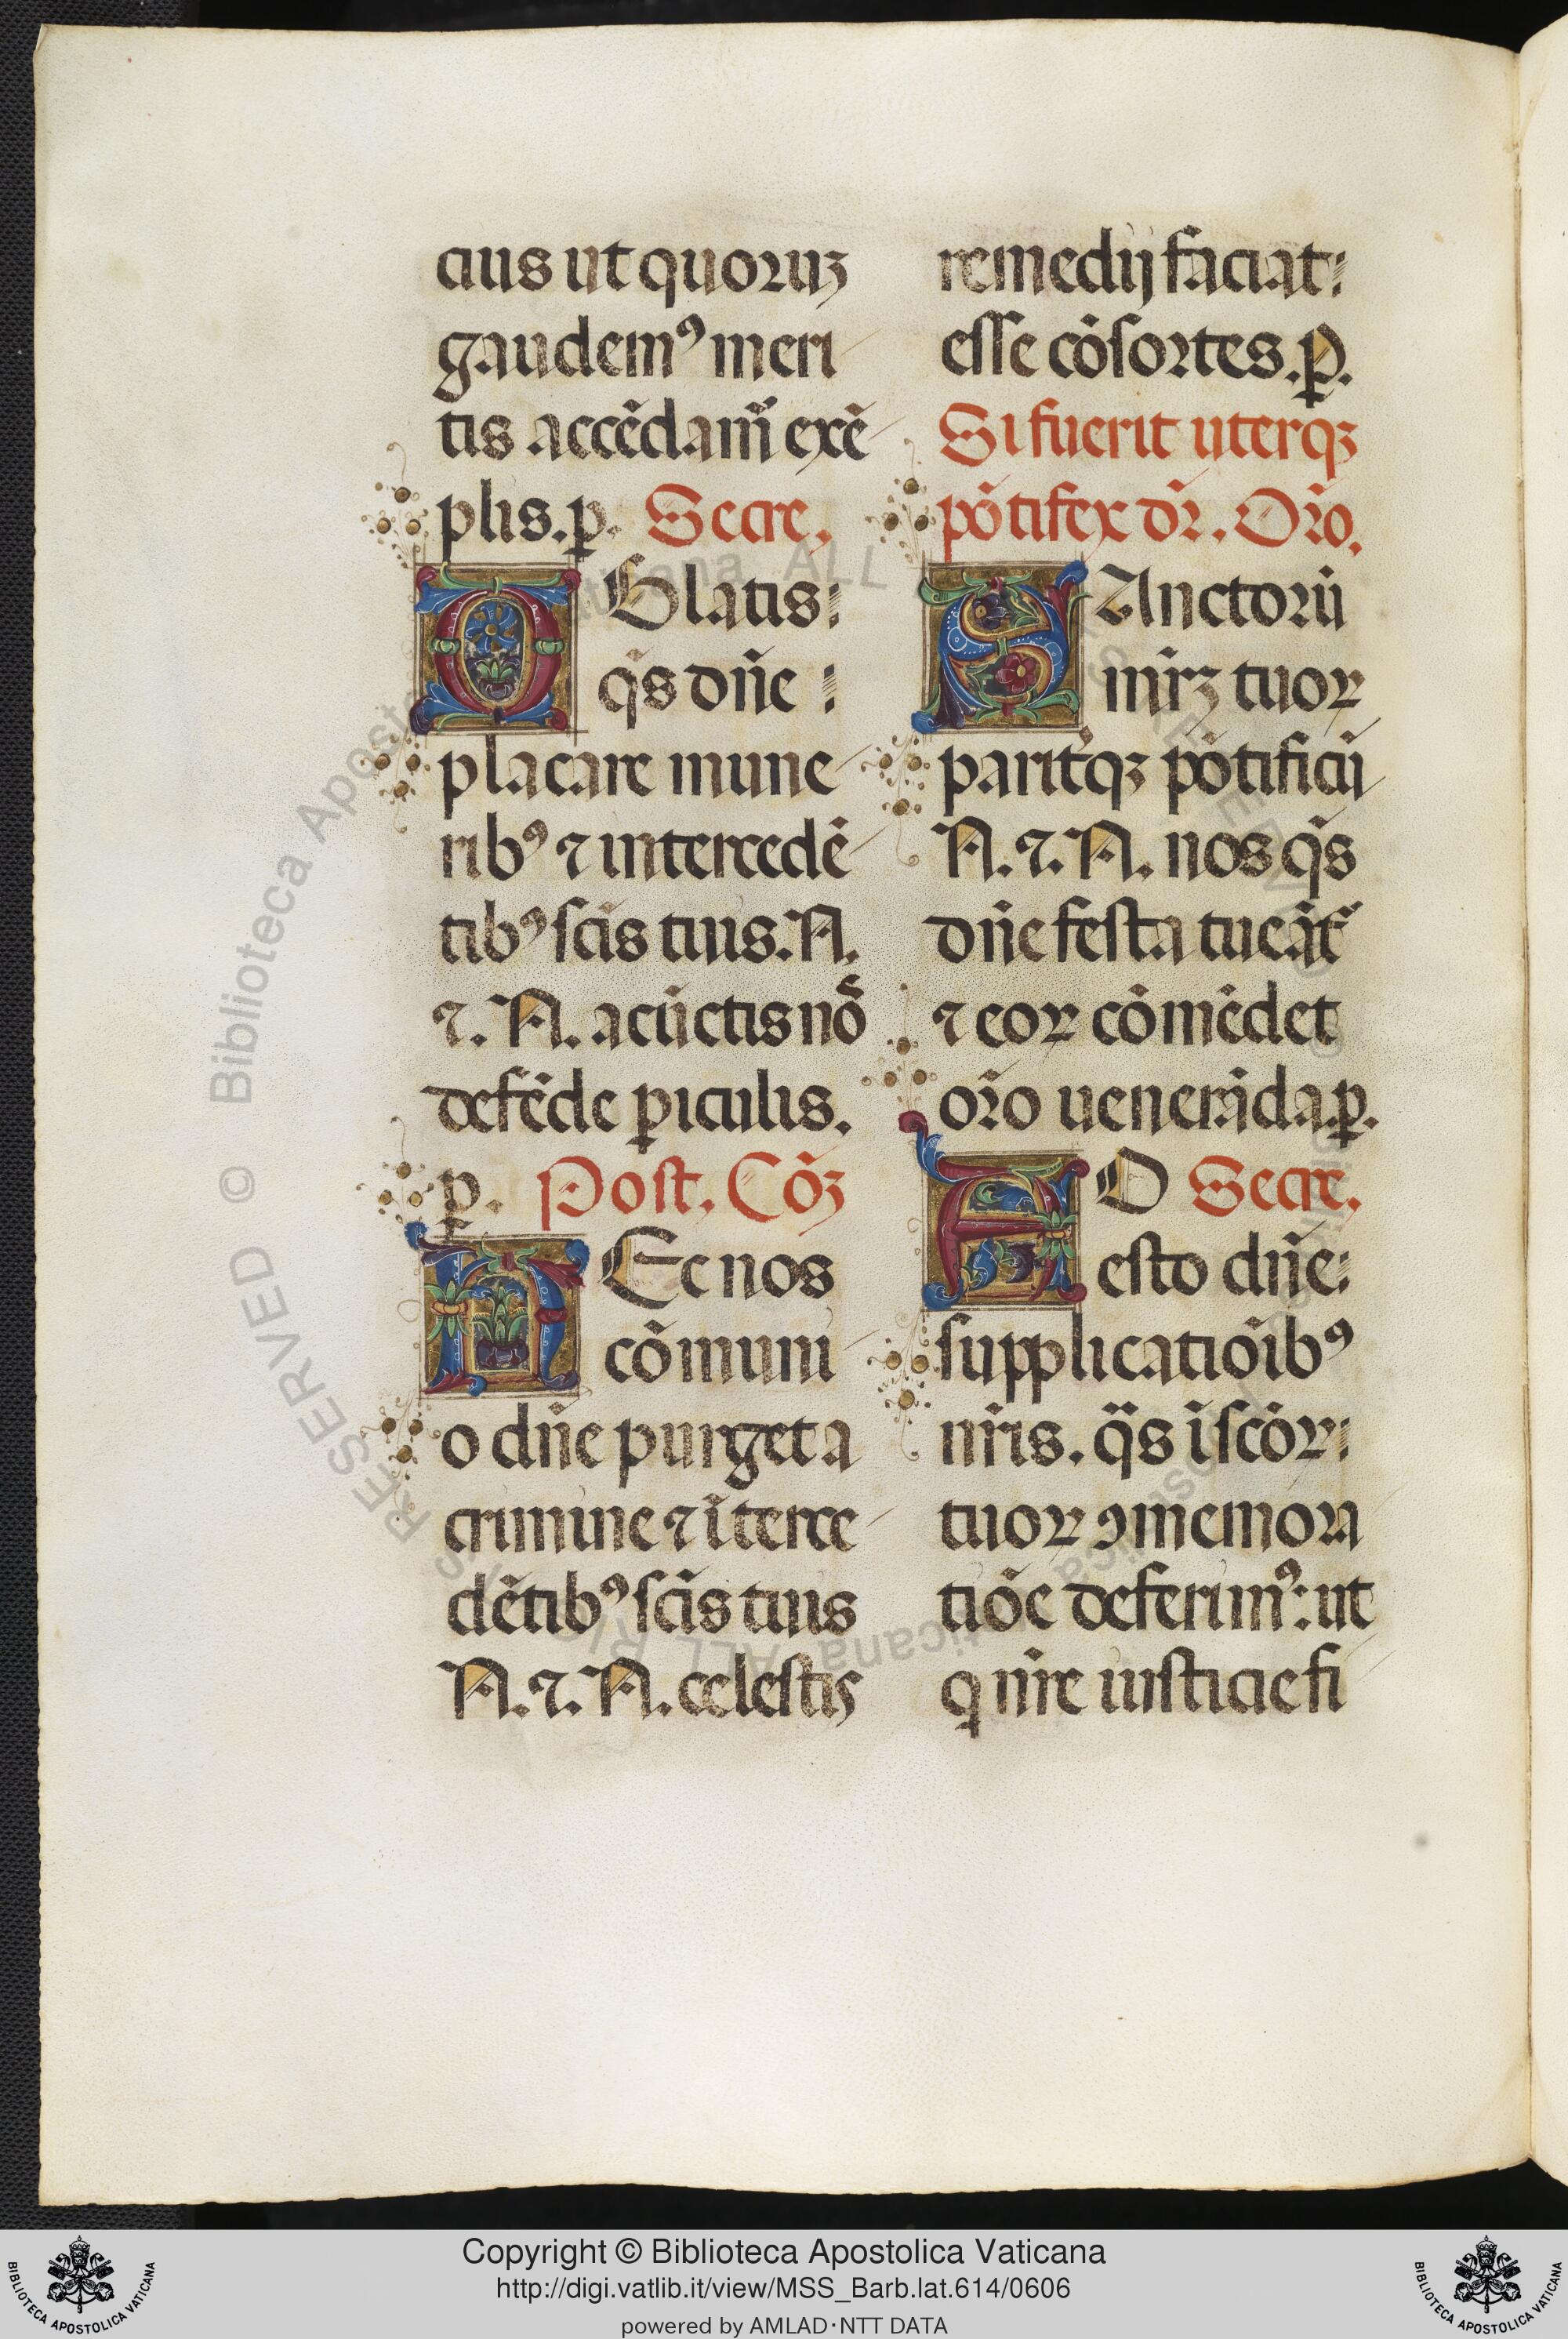 cius ut quoruꝫ
gaudemꝰ meri
tis accēdam̄ exē
plis. p. Secre.
OBlatis:
q̄s dn̄e :
placare mune
ribꝰ ⁊ intercedē
tibꝰ scīs tuis. N.
⁊. N. a cūctis nō
defēde ꝑiculis.
p. Post. Cōꝫ
HEc nos
cōmuni
o dn̄e purget a
crimine ⁊ īterce
dētibꝰ scīs tuis
N. ⁊. N. celestis
remedij faciat:
esse cōsortes. p.
Si fuerit uterqꝫ
pōtifex dr̄. Or̄o.
SAnctorū
mr̄ꝫ tuoꝝ
paritqꝫ pōtificū
N. ⁊. N. nos q̄s
dn̄e festa tueāt᷑
⁊ eoꝝ cōmēdet
or̄o uenerāda. p.
AD Secre.
esto dn̄e:
supplicatiōibꝰ
nr̄is. q̄s ī scōꝝ:
tuoꝝ ꝯmemora
tiōe deferimꝰ: ut
q nr̄e iusticie fi
Biblioteca Apostolica Vaticana ALL RIGHTS RESERVED ©
Copyright © Biblioteca Apostolica Vaticana
http://digi.vatlib.it/view/MSS_Barb.lat.614/0606
powered by AMLAD·NTT DATA
BIBLIOTECA APOSTOLICA VATICANA
BIBLIOTECA APOSTOLICA VATICANA